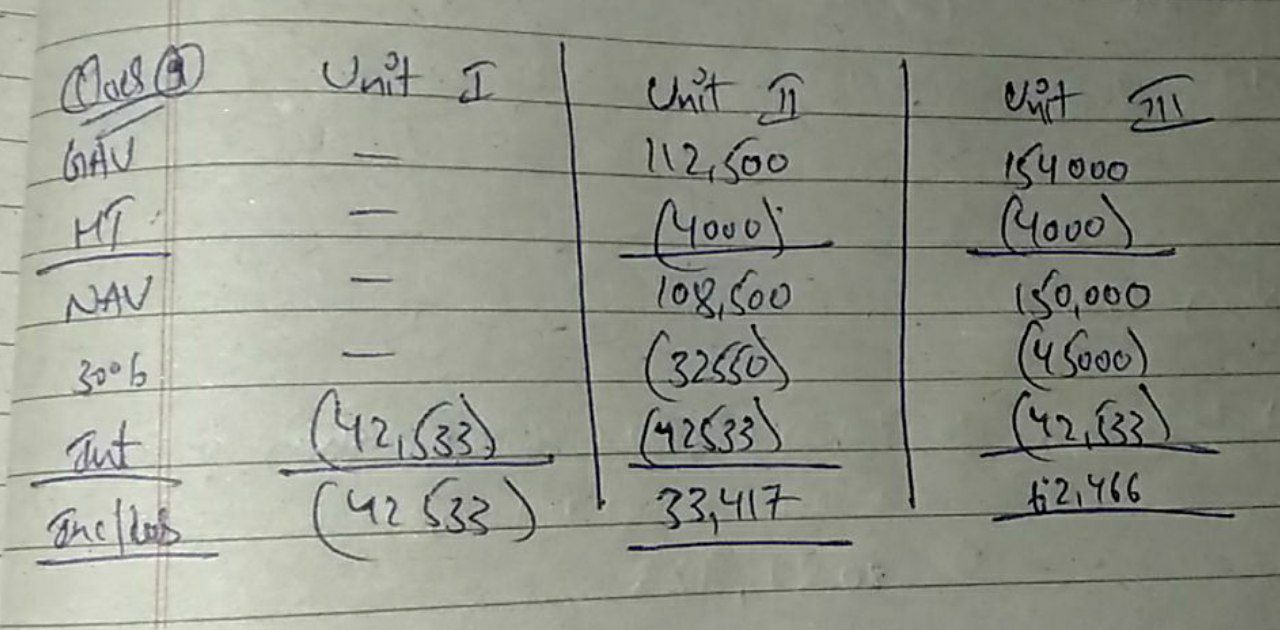 Ques 9 Unit I Unit II Unit III
GAV — 112,500 154000
MT — (4000) (4000)
NAV — 108,500 150,000
30% — (32550) (45000)
Int (42,533) (42533) (42,533)
Inc/Loss (42533) 33,417 62,466